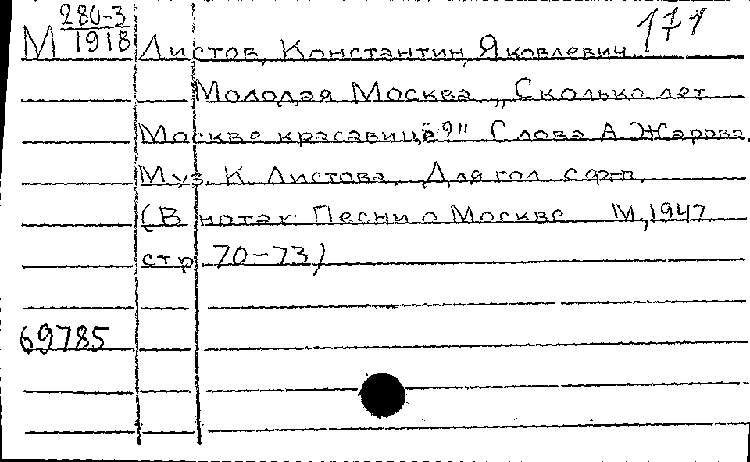 280-3
М 1918 Листов, Константин Яковлевич 171
Молодая Москва. „Сколько лет
Москве красавице?" Слова А. Жарова.
Муз. К. Листова. Для гол. с ф-п.
(В нотах: Песни о Москве. М, 1947
стр 70-73)
69785